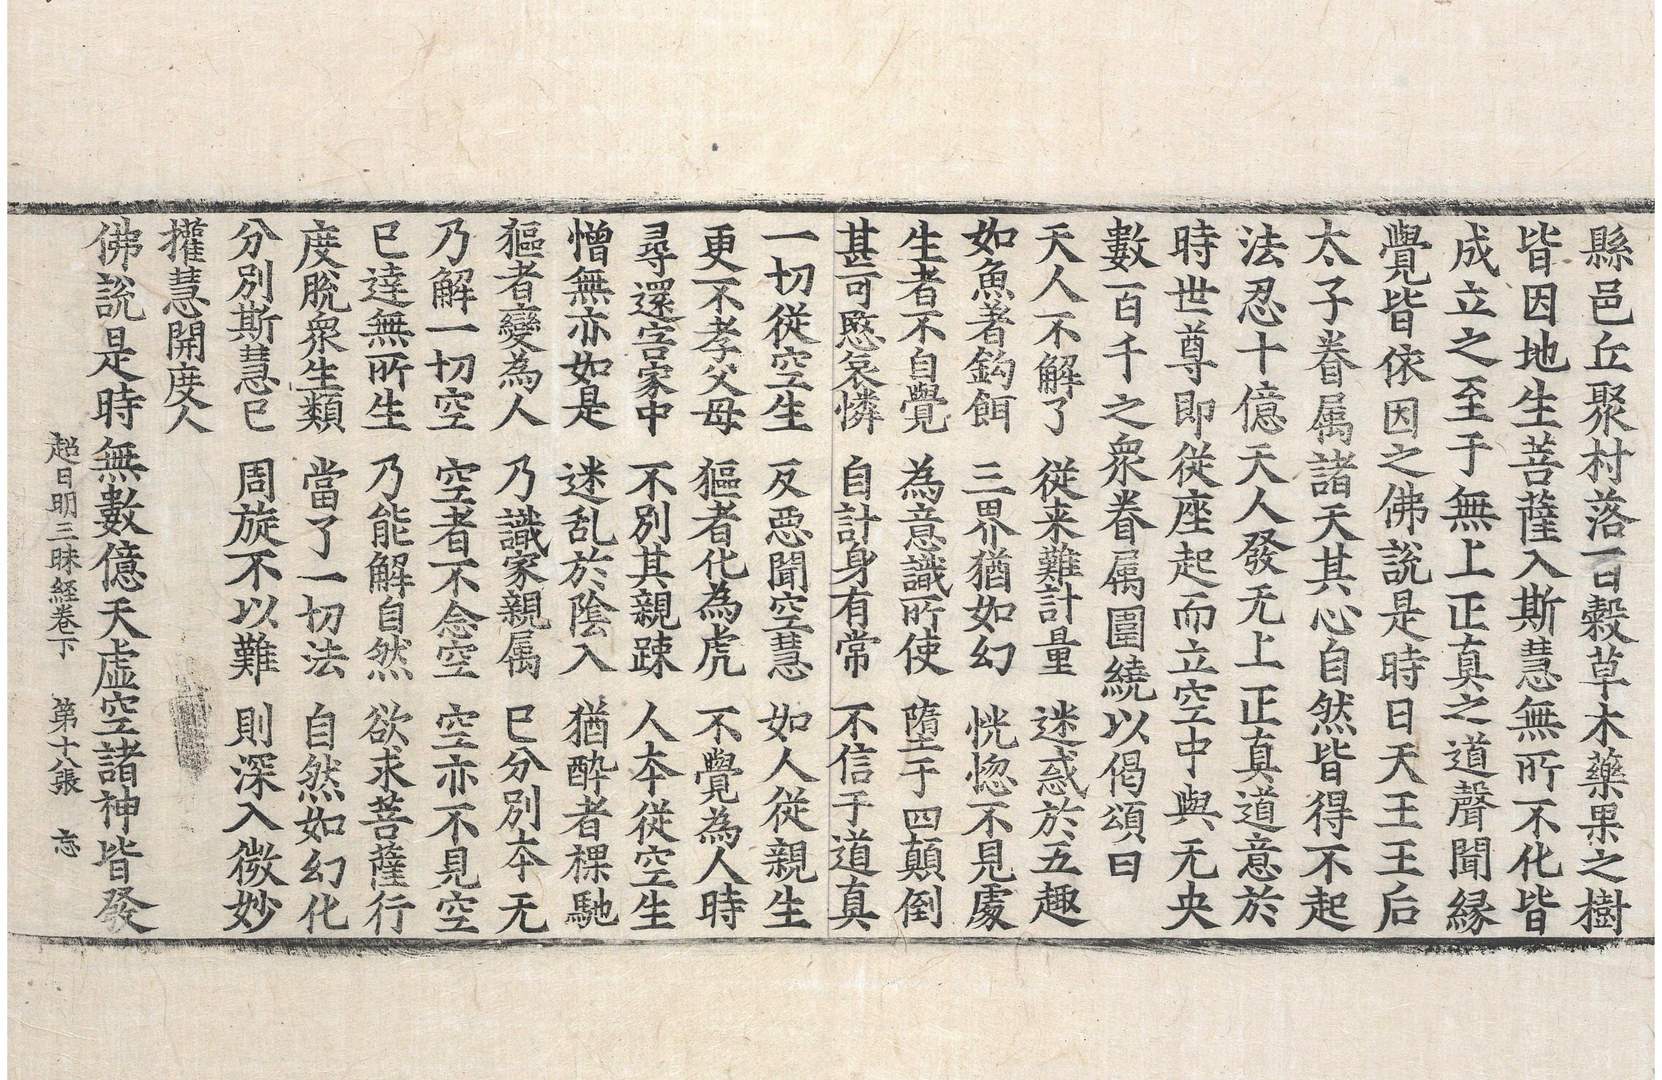 縣邑丘聚村落百穀草木藥果之樹
皆因地生菩薩入斯慧無所不化皆
成立之至于無上正真之道聲聞縁
覺皆依因之佛說是時日天王王后
太子眷属諸天其心自然皆得不起
法忍十億天人發无上正真道意於
時世尊即從座起而立空中與无央
數百千之衆眷属圍繞以偈頌曰
天人不解了 從来難計量 迷惑於五趣
如魚著鈎餌 三界猶如幻 恍惚不見處
生者不自覺 為意識所使 墮于四顛倒
甚可愍哀憐 自計身有常 不信于道真
一切從空生 反惡聞空慧 如人從親生
更不孝父母 貙者化為虎 不覺為人時
尋還害家中 不別其親踈 人夲從空生
憎無亦如是 迷乱於陰入 猶酔者騍馳
貙者變為人 乃識家親属 已分別夲无
乃解一切空 空者不念空 空亦不見空
已達無所生 乃能解自然 欲求菩薩行
度脫衆生類 當了一切法 自然如幻化
分別斯慧已 周旋不以難 則深入微妙
攉慧開度人
佛說是時無數億天虚空諸神皆發
超日明三昧経卷下 第十八張 忘